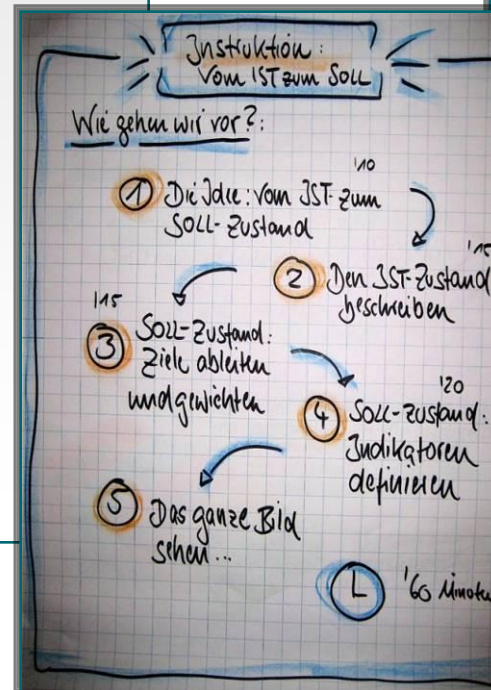 Instruktion:
Vom IST zum SOLL
Wie gehen wir vor?:
'10
1 Die Idee: vom IST zum
SOLL-Zustand
'15
2 Den IST-Zustand
beschreiben
'15
3 SOLL-Zustand:
Ziele ableiten
und gewichten
'20
4 SOLL-Zustand:
Indikatoren
definieren
5 Das ganze Bild
sehen...
'60 Minuten